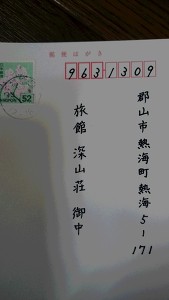 郵便はがき
9631309
郡山市熱海町熱海5-171
旅館 深山荘 御中
52